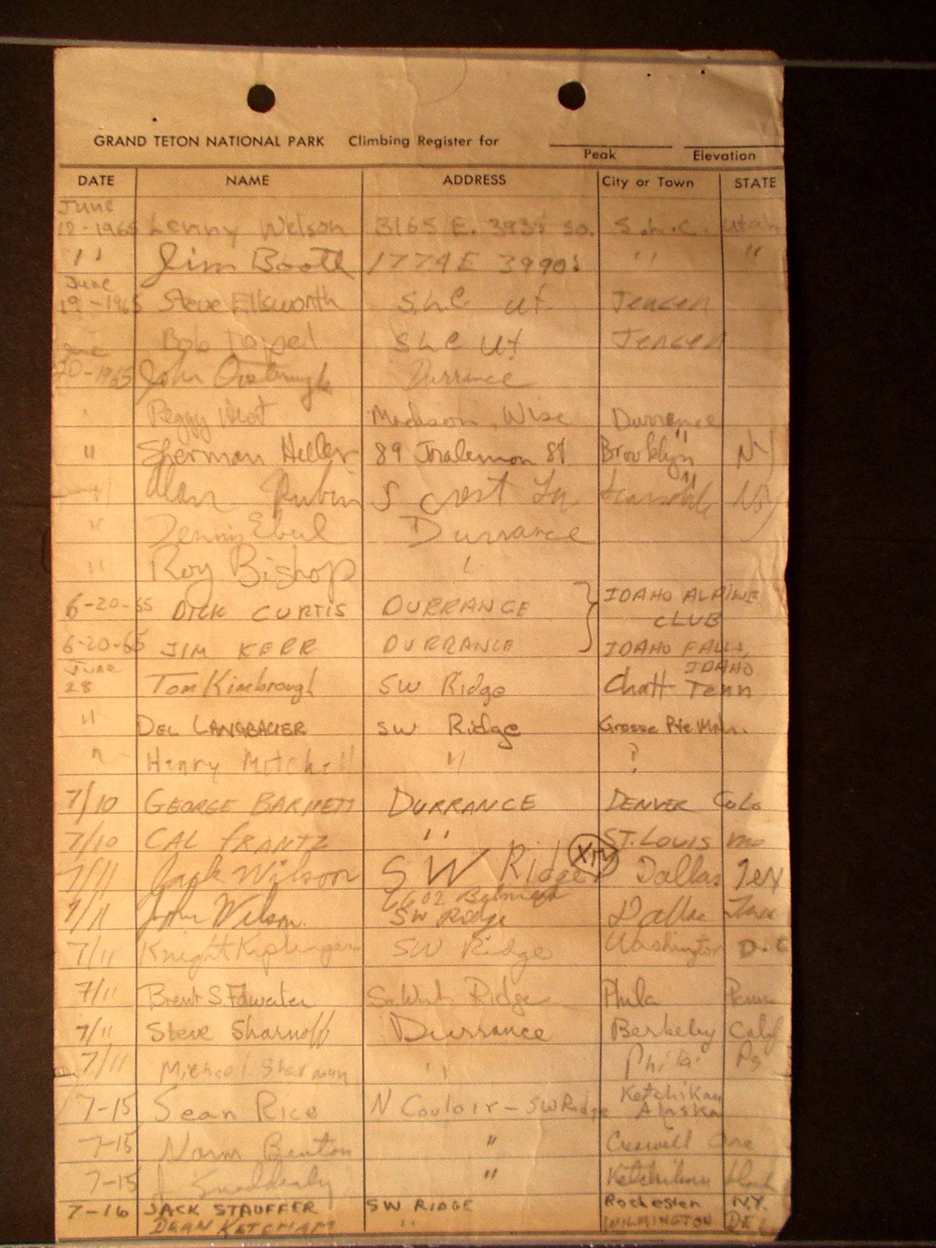 GRAND TETON NATIONAL PARK Climbing Register for
Peak Elevation
DATE NAME ADDRESS City or Town STATE
June
12-1965 Lenny Nelson 3165 E. 3935 So. S.L.C. Utah
" Jim Booth 1774 E 3990 S " "
June
19-1965 Steve Ellsworth S.L.C Ut. Jensen
Bob S L C Ut Jensen
June
20-1965 John Durrance
" Peggy West Madison, Wisc Durrance
" Sherman Heller 89 Joralemon St Brooklyn NY
" Alan Rubin 5 Crest Ln Scarsdale NY
" Dennis Durrance
" Roy Bishop "
6-20-65 DICK CURTIS DURRANCE } IDAHO ALPINE
CLUB
6-20-65 JIM KERR DURRANCE IDAHO FALLS,
IDAHO
June
28 Tom Kimbrough SW Ridge Chatt Tenn
" DEL LANGBAUER SW Ridge Grosse Pte Mich.
" Henry Mitchell " ?
7/10 GEORGE BARNETT DURRANCE DENVER Colo
7/10 CAL FRANTZ " ST. LOUIS mo
7/11 Jack Wilson SW Ridge XIV Dallas Tex
6602
7/11 John Wilson. SW Ridge Dallas Texas
7/11 Knight Kiplinger SW Ridge Washington D.C
7/11 Brent S. Ridge Phila Penn
7/11 Steve Sharnoff Durrance Berkeley Calif
7/11 Michael Sherman " Phila Pa
7-15 Sean Rice N Couloir - SW Ridge Ketchikan
Alaska
7-15 Norm Benton " Creswell Ore
7-15 " Ketchikan Alask
7-16 JACK STAUFFER SW RIDGE Rochester N.Y.
DEAN KETCHAM " WILMINGTON DEL